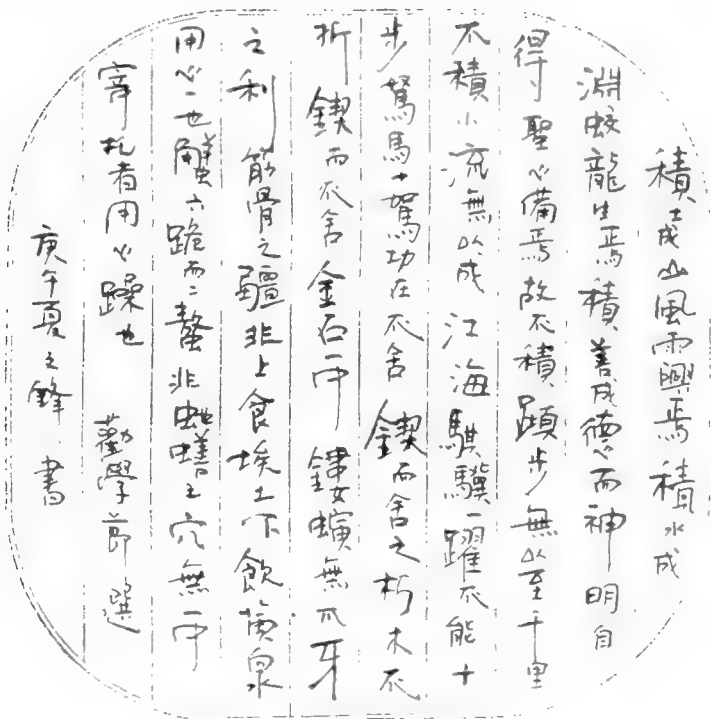 積土成山風雨興焉積水成
淵蛟龍生焉積善成德而神明自
得聖心備焉故不積蹞步無以至千里
不積小流無以成江海騏驥一躍不能十
步駑馬十駕功在不舍鍥而舍之朽木不
折鍥而不舍金石可鏤螾無爪牙
之利筋骨之彊非上食埃土下飲黃泉
用心一也蟹六跪而二螯非虵蟺之穴無可
寄托者用心躁也 勸學節選
庚午夏之鋒書